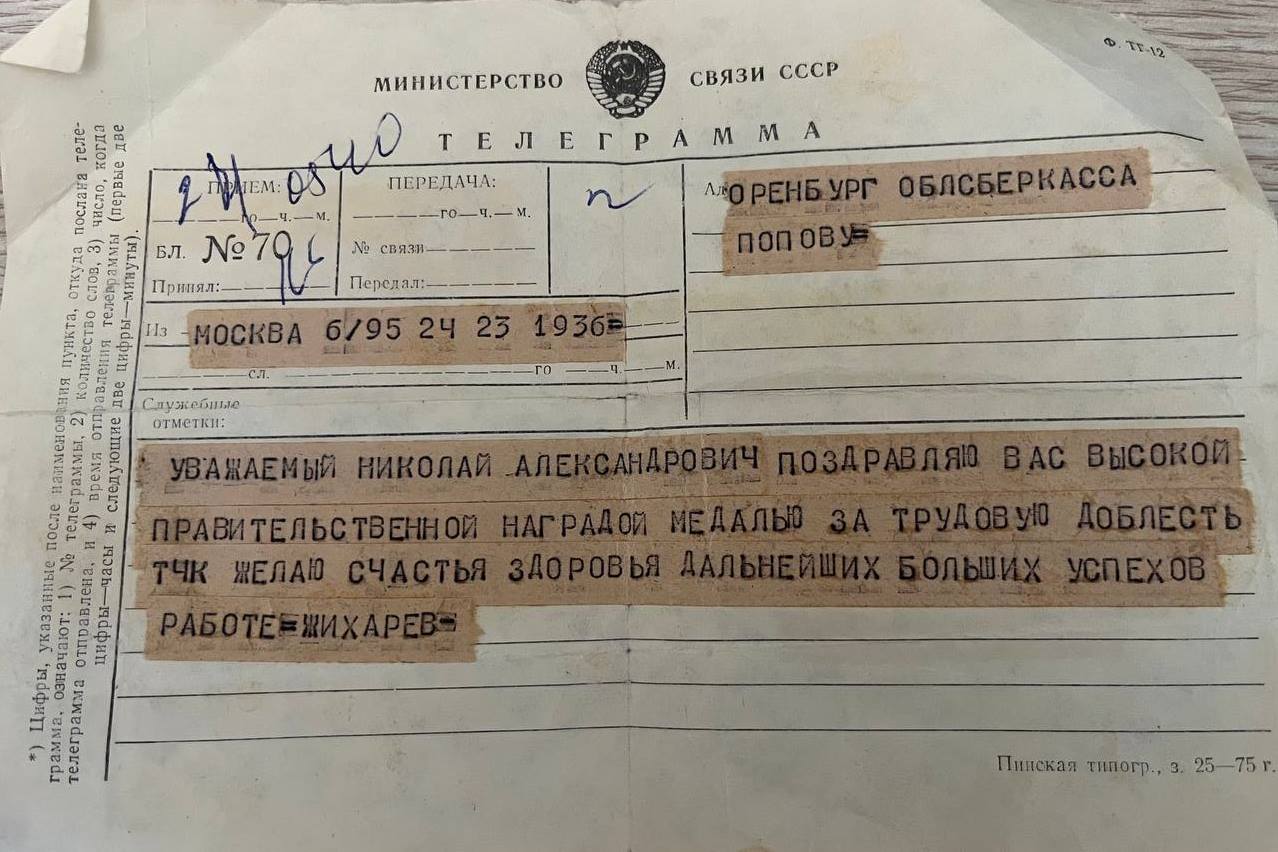 Ф. ТГ-12
МИНИСТЕРСТВО СВЯЗИ СССР
ТЕЛЕГРАММА
ПРИЕМ:
го—ч.—м.
БЛ. №70
Принял:
ПЕРЕДАЧА:
го—ч.—м.
№ связи
Передал:
п
Ад
ОРЕНБУРГ ОБЛСБЕРКАССА
ПОПОВУ=
Из МОСКВА 6/95 24 23 1936=
сл. го ч. м.
Служебные
отметки:
УВАЖАЕМЫЙ НИКОЛАЙ АЛЕКСАНДРОВИЧ ПОЗДРАВЛЯЮ ВАС ВЫСОКОЙ
ПРАВИТЕЛЬСТВЕННОЙ НАГРАДОЙ МЕДАЛЬЮ ЗА ТРУДОВУЮ ДОБЛЕСТЬ
ТЧК ЖЕЛАЮ СЧАСТЬЯ ЗДОРОВЬЯ ДАЛЬНЕЙШИХ БОЛЬШИХ УСПЕХОВ
РАБОТЕ=ЖИХАРЕВ-
Пинская типогр., з. 25—75 г.
*) Цифры, указанные после наименования пункта, откуда послана теле-
грамма, означают: 1) № телеграммы, 2) количество слов, 3) число, когда
телеграмма отправлена, и 4) время отправления телеграммы (первые две
цифры—часы и следующие две цифры—минуты).